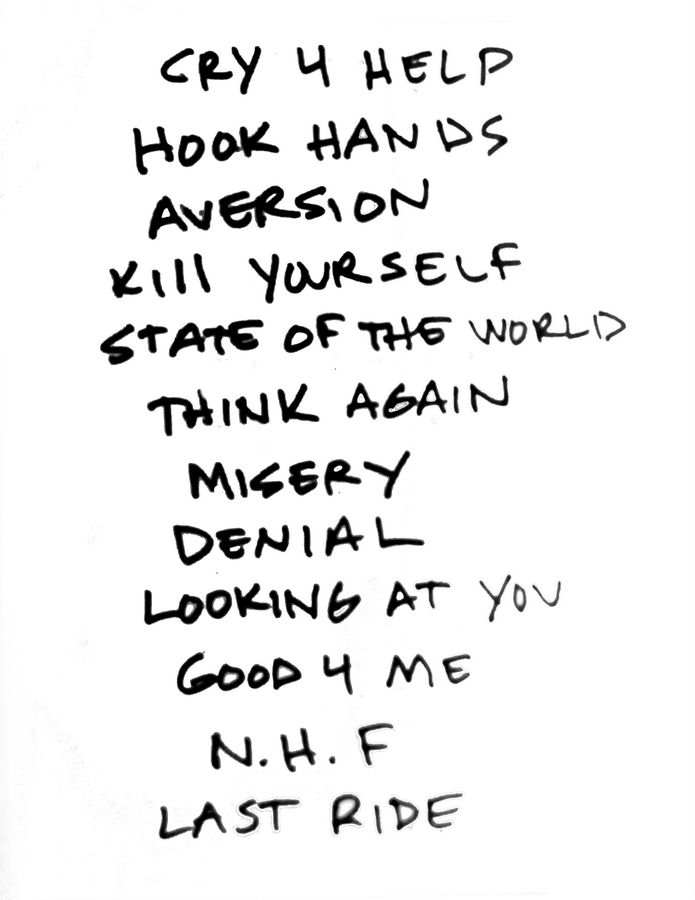 CRY 4 HELP
HOOK HANDS
AVERSION
KILL YOURSELF
STATE OF THE WORLD
THINK AGAIN
MISERY
DENIAL
LOOKING AT YOU
GOOD 4 ME
N.H.F
LAST RIDE